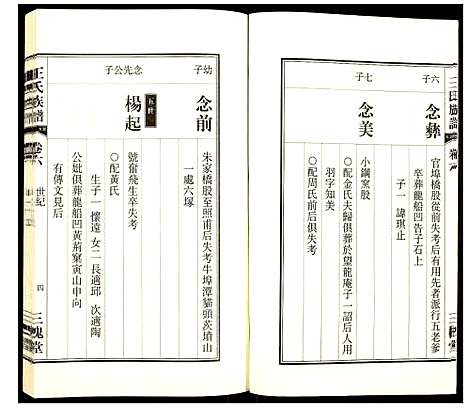 六子
念彝
官埠橋股從前失考后有用先者派行五老爹
卒葬龍船凹告子石上
子一 諱琪止
七子
念美
小鋼窯股
○配金氏夫歸俱葬於望龍庵子一詔后人用
羽字知美
○配周氏前后俱失考
三槐堂
幼子
念前
朱家橋股至照甫后失考牛埠潭貓頭茨墳山
一處六塚
五世
念先公子
楊起
號奮飛生卒失考
○配黃氏
生子一 懷遠 女二 長適邱 次適陶
公妣俱葬龍船凹黃荊窠寅山申向
有傳文見后
王氏族譜
卷六
世紀
四
三槐堂